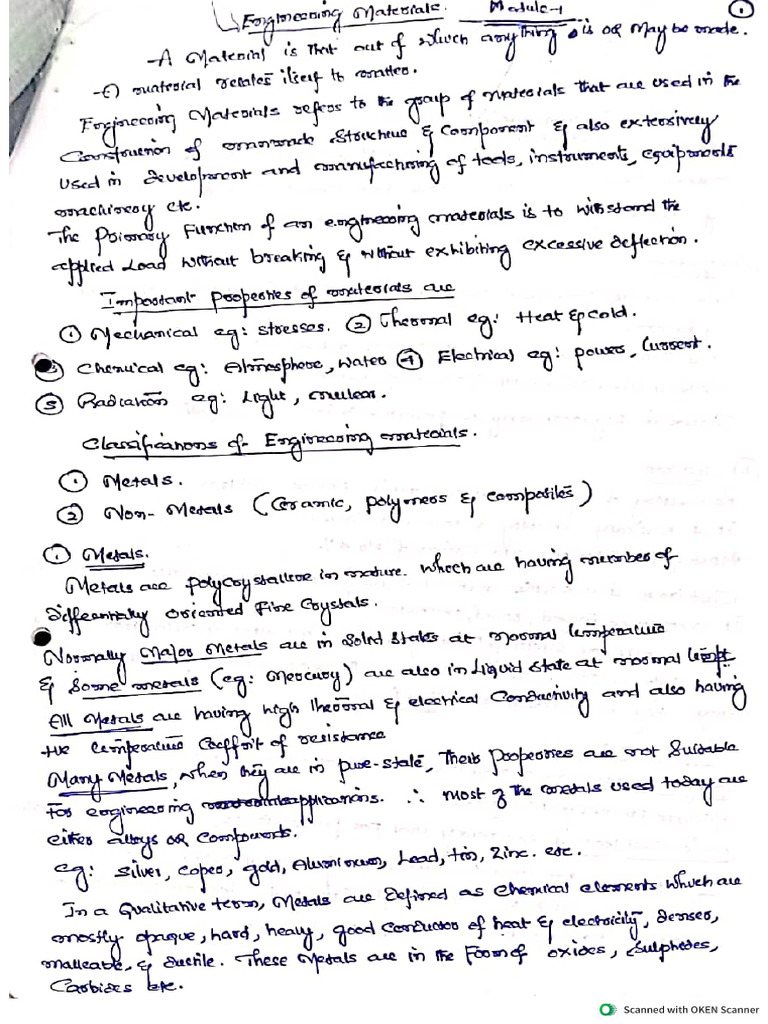 Engineering Materials. Module-1 ①
-A Material is that out of which anything is or may be made.
- material relates itself to matter.
Engineering Materials refers to the group of materials that are used in the
Construction of manmade Structure & Component & also extensively
used in development and manufacturing of tools, instruments, equipments
machinery etc.
The Primary Function of an engineering materials is to withstand the
applied Load without breaking & without exhibiting excessive deflection.
Important properties of materials are
① Mechanical eg: stresses. ② Thermal eg: Heat & cold.
Chemical eg: Atmosphere, Water ④ Electrical eg: power, Current.
⑤ Radiation eg: Light, nuclear.
Classifications of Engineering materials.
① Metals.
② Non-Metals (Ceramic, polymers & composites)
① Metals.
Metals are polycrystalline in nature. Which are having number of
differentially oriented Fine Crystals.
Normally Major Metals are in Solid states at normal temperature
& Some metals (eg: Mercury) are also in Liquid state at normal temp.
All Metals are having high thermal & electrical Conductivity and also having
+ve temperature Coeffint of resistance
Many Metals, when they are in pure-state, Their Properties are not Suitable
For engineering applications. ∴ most of the metals used today are
either alloys or Compounds.
eg: Silver, Coper, gold, Aluminium, Lead, tin, Zinc. etc.
In a Qualitative term, Metals are defined as Chemical elements which are
mostly opaque, hard, heavy, good conductor of heat & electricity, denser,
malleable, & ductile. These Metals are in the Form of oxides, Sulphides,
Carbides etc.
Scanned with OKEN Scanner